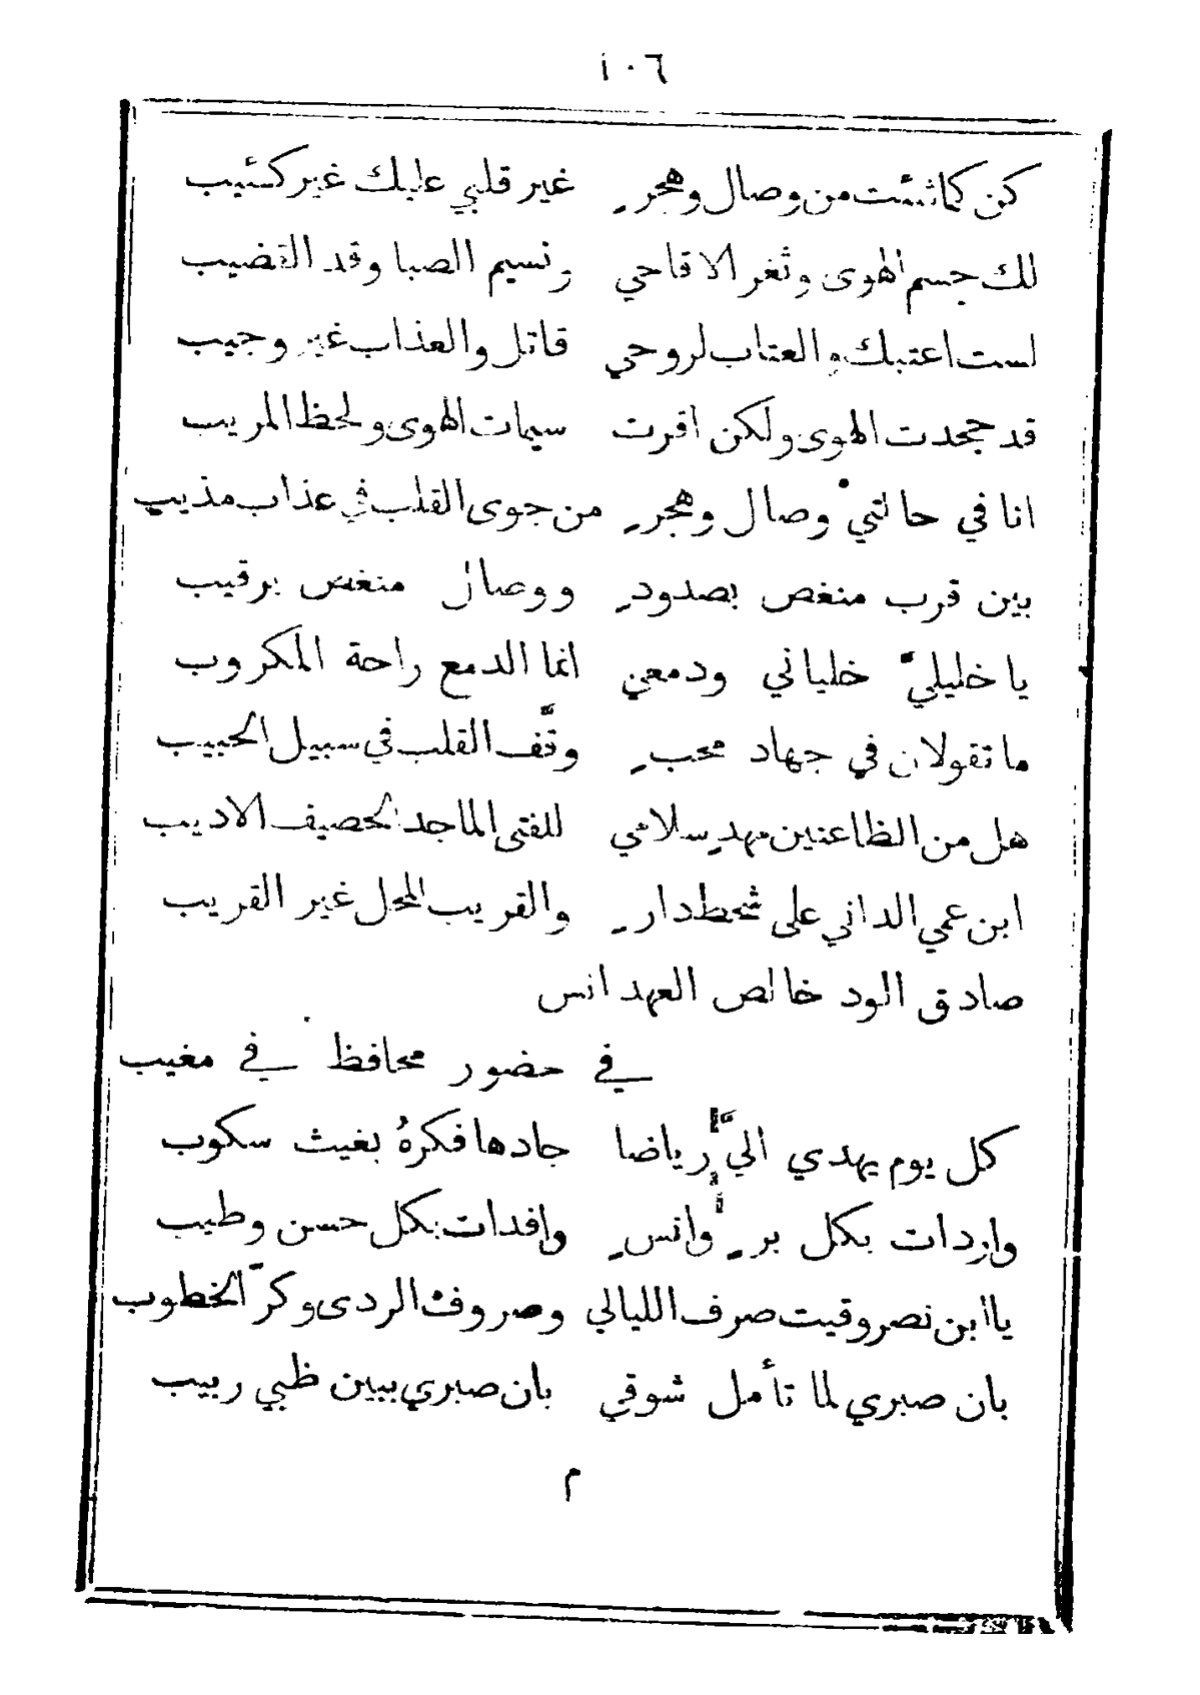 ١٠٦
كن كما شئت من وصال وهجرٍ غير قلبي عليك غير كئيب
لك جسم الهوى وثغر الاقاحي ونسيم الصبا وقد القضيب
لست اعتبك والعتاب لروحي قاتل والعذاب غير وجيب
قد جحدت الهوى ولكن اقرت سيمات الهوى ولحظ المريب
انا في حالتيْ وصال وهجرٍ من جوى القلب في عذاب مذيب
بين قرب منغص بصدودٍ ووصال منغص برقيب
يا خليليَّ خلياني ودمعي انما الدمع راحة المكروب
ما تقولان في جهاد محبٍ وقَّف القلب في سبيل الحبيب
هل من الظاعنين مهدٍ سلامي للفتى الماجد الحصيف الاديب
ابن عمي الداني على شحط دارٍ والقريب المحل غير القريب
صادق الود خالص العهد انس
في حضور محافظ في مغيب
كل يوم يهدي اليَّ رياضا جادها فكرهُ بغيث سكوب
واردات بكل برٍ وانسٍ وافدات بكل حسن وطيب
يا ابن نصر وقيت صرف الليالي وصروف الردى وكرّ الخطوب
بان صبري لما تأمل شوقي بان صبري ببين ظبي ربيب
م